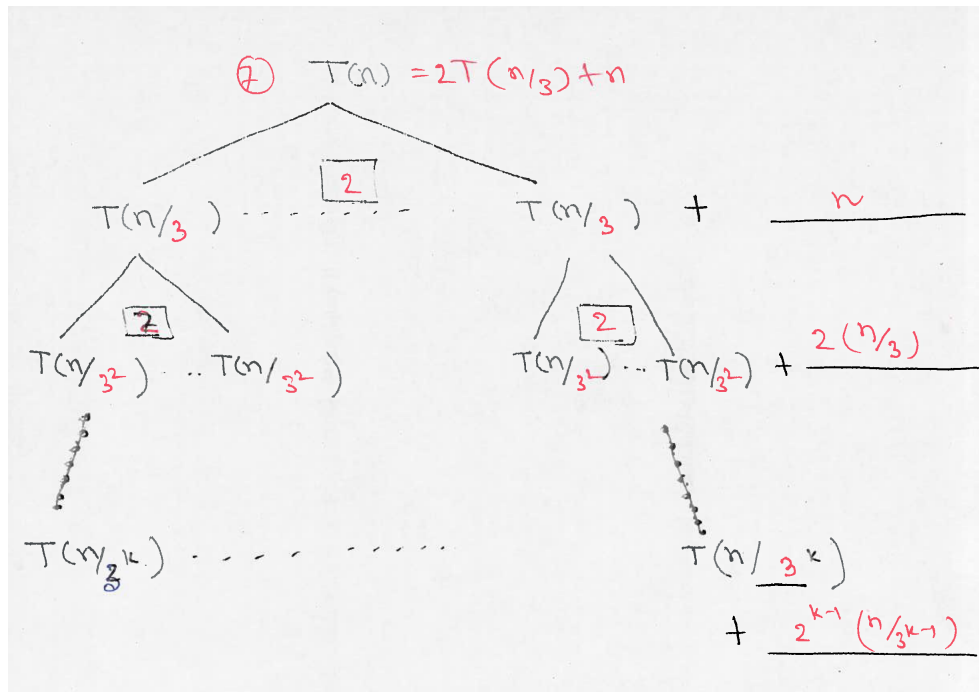 ② T(n) = 2T(n/3) + n
2
T(n/3) . . . . . . . . . T(n/3) + n
2 2
T(n/3²) . . . T(n/3²) T(n/3²) ... T(n/3²) + 2(n/3)
T(n/3ᵏ) . . . . . . . . . . T(n/3ᵏ)
+ 2ᵏ⁻¹ (n/3ᵏ⁻¹)